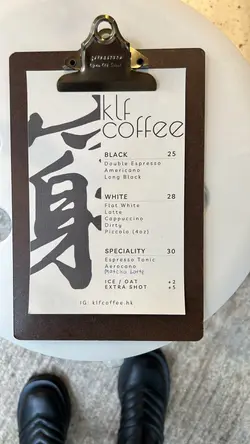 klf
coffee
BLACK 25
Double Espresso
Americano
Long Black
WHITE 28
Flat White
Latte
Cappuccino
Dirty
Piccolo (4oz)
SPECIALITY 30
Espresso Tonic
Aerocano
Matcha Latte
ICE / OAT +2
EXTRA SHOT +5
IG: klfcoffee.hk
身